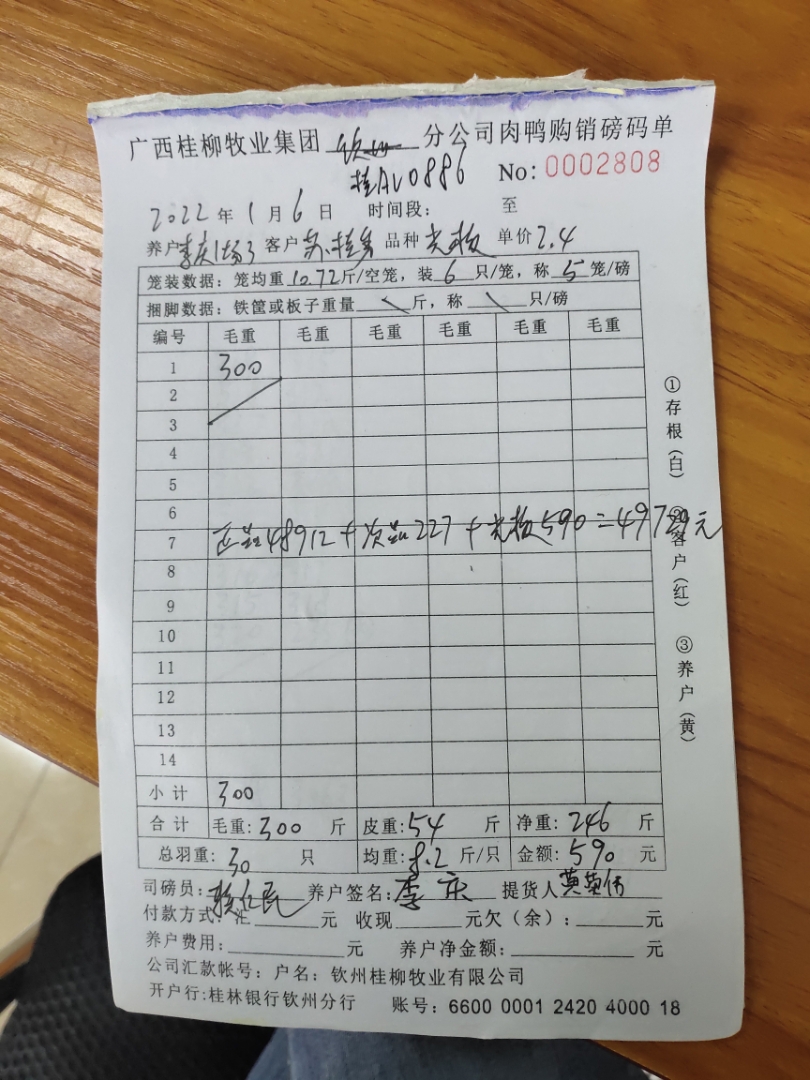 广西桂柳牧业集团 钦州 分公司肉鸭购销磅码单
桂AV0886 No: 0002808
2022年1月6日 时间段： 至
养户 李庆1场3 客户 品种 单价2.4
笼装数据：笼均重10.72斤/空笼，装6只/笼，称5笼/磅
捆脚数据：铁筐或板子重量 斤，称 只/磅
编号 毛重 毛重 毛重 毛重 毛重 毛重
1 300
2
3
4
5
6
7 正品48912+次品227+光板590=49729元
8
9
10
11
12
13
14
小计 300
合计 毛重：300斤 皮重：54斤 净重：246斤
总羽重：30只 均重：8.2斤/只 金额：590元
司磅员： 养户签名：李庆 提货人
付款方式：汇 元 收现 元欠（余）： 元
养户费用： 元 养户净金额： 元
公司汇款帐号：户名：钦州桂柳牧业有限公司
开户行：桂林银行钦州分行 账号：6600 0001 2420 4000 18
①存根（白） ②客户（红） ③养户（黄）